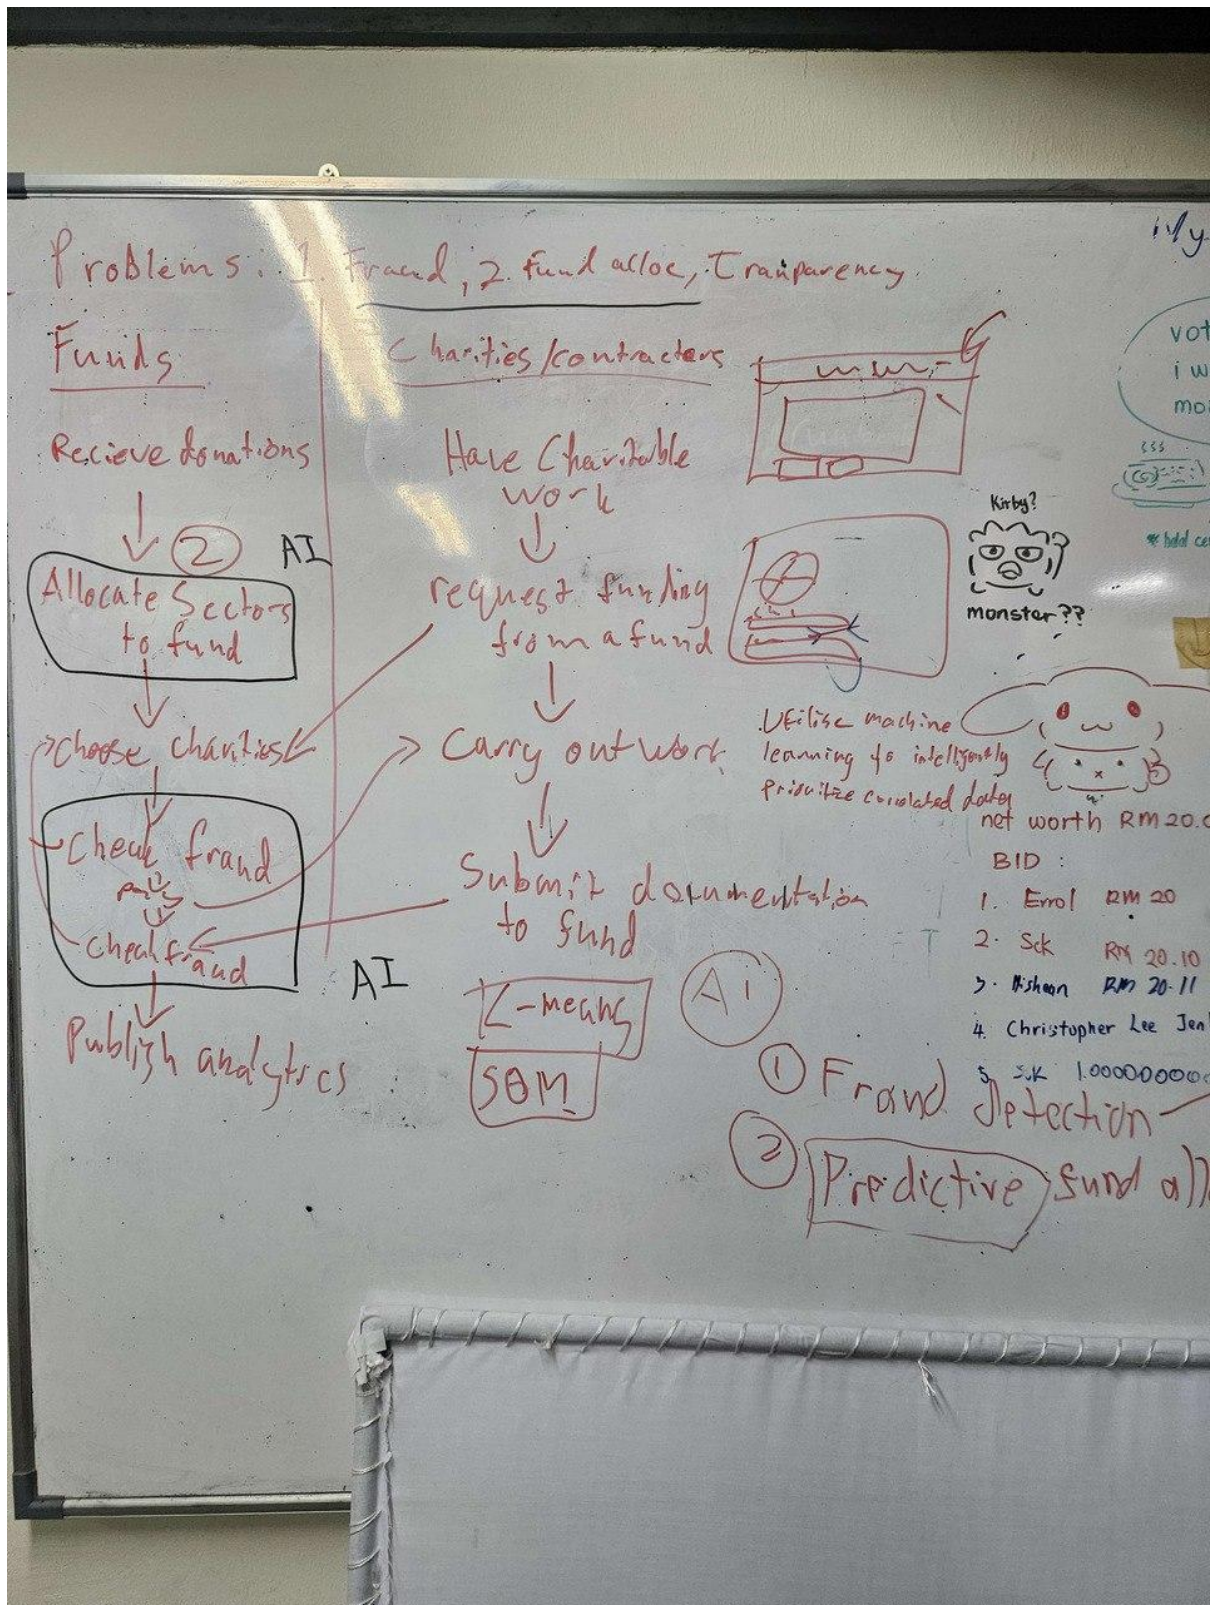 Problems: 1. Fraud, 2. Fund alloc, Tranparency
Funds
Recieve donations
2
AI
Allocate Sectors
to fund
Choose charities
Check fraud
Check fraud
AI
Publish analytics
Charities/contracters
Have Charitable
work
request funding
from a fund
Carry out work
Submit documentation
to fund
K-means
SOM
AI
1 Fraud detection
2 Predictive fund all
Utilise machine
learning to intelligently
prioritize data
Kirby?
monster??
net worth RM 20.
BID :
1. Errol RM 20
2. Sck RM 20.10
3. RM 20.11
4. Christopher Lee Jen
5. Sck 1.000000000
vot
i w
mo